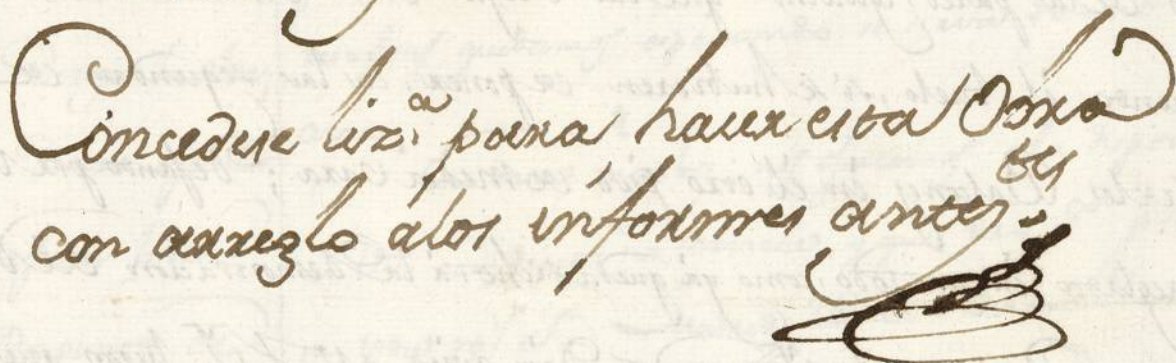 Concedese liz.ª para hacer esta Obra
con arreglo alos informes antes.tes